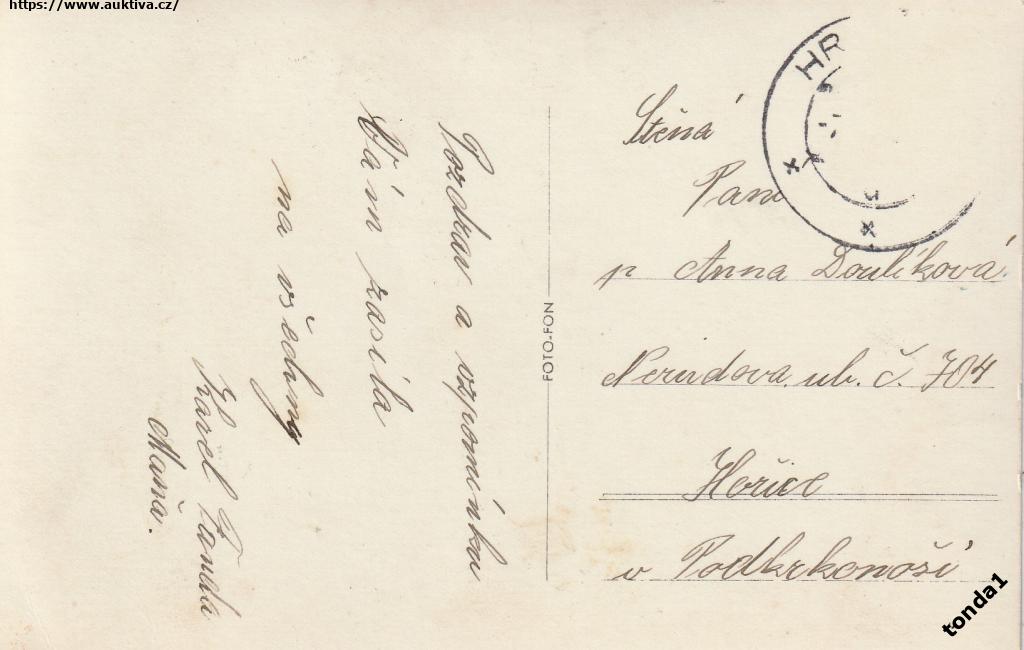 https://www.auktiva.cz/
HR
Pozdrav a vzpomínku
Vám zasílá
na všedny
Karel Fanda
Máňa.
FOTO-FON
Ctěná
Paní
p Anna Doulíková
Nerudova ul. č. 704
Hořice
v Podkrkonoší
tonda1